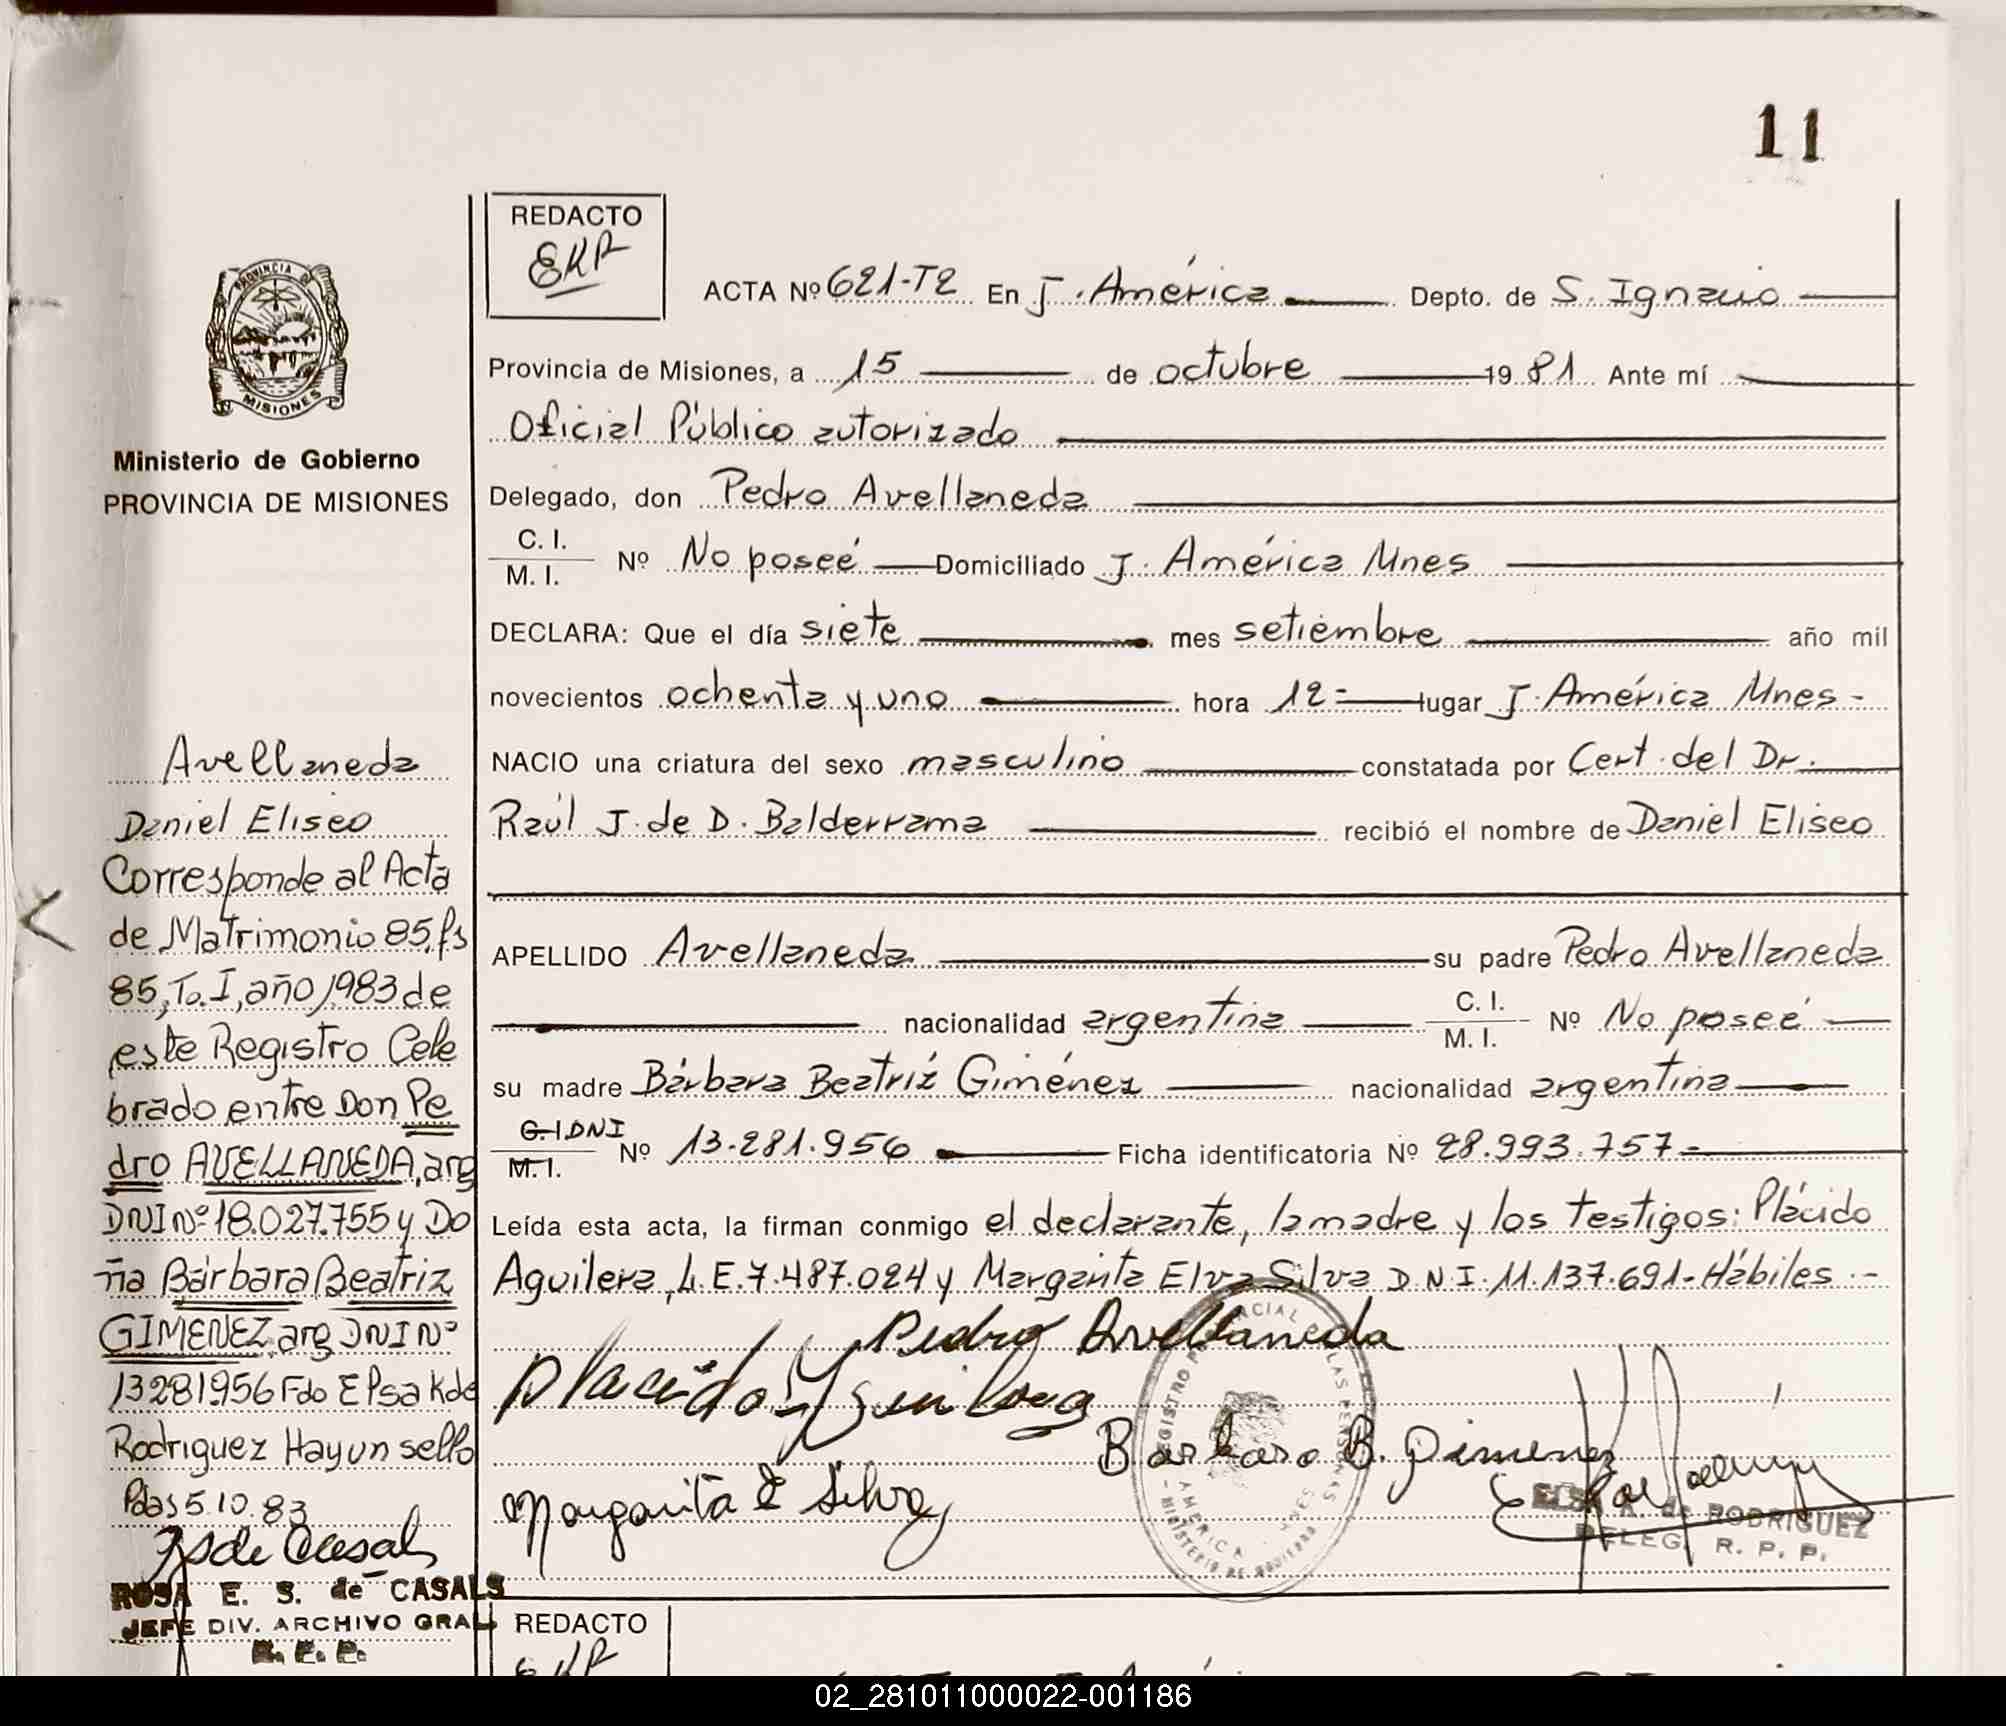 11
REDACTO
EKR
ACTA Nº 621-T2 En J. América Depto. de S. Ignacio
Provincia de Misiones, a 15 de octubre 19 81 Ante mí
Oficial Público autorizado
Delegado, don Pedro Avellaneda
C. I.
M. I. Nº No poseé Domiciliado J. América Mnes
DECLARA: Que el día siete mes setiembre año mil
novecientos ochenta y uno hora 12= lugar J. América Mnes-
NACIO una criatura del sexo masculino constatada por Cert. del Dr.
Raúl J. de D. Balderrama recibió el nombre de Daniel Eliseo
APELLIDO Avellaneda su padre Pedro Avellaneda
nacionalidad argentina C. I.
M. I. Nº No poseé
su madre Bárbara Beatriz Giménez nacionalidad argentina
C. I DNI
M. I. Nº 13.281.956 Ficha identificatoria Nº 28.993.757-
Leída esta acta, la firman conmigo el declarante, la madre y los testigos: Plácido
Aguilera, L.E. 7.487.024 y Margarita Elva Silva D.N.I. 11.137.691- Hábiles.-
Pedro Avellaneda
Placido
Barbara B. Gimenez
Margarita E Silva
REGISTRO PROVINCIAL DE LAS PERSONAS
AMERICA
MINISTERIO DE GOBIERNO
ELSA K. de RODRIGUEZ
DELEG. R. P. P.
PROVINCIA DE
MISIONES
Ministerio de Gobierno
PROVINCIA DE MISIONES
Avellaneda
Daniel Eliseo
Corresponde al Acta
de Matrimonio 85, fs
85, To. I, año 1983 de
este Registro Cele
brado entre Don Pe
dro AVELLANEDA, arg
DNI Nº 18.027.755 y Do
ña Bárbara Beatriz
GIMENEZ, arg DNI Nº
13281956 Fdo Elsa K de
Rodriguez Hay un sello
Pdas 5.10.83
de Casals
ROSA E. S. de CASALS
JEFE DIV. ARCHIVO GRAL
R. P. P.
REDACTO
EKR
02_281011000022-001186